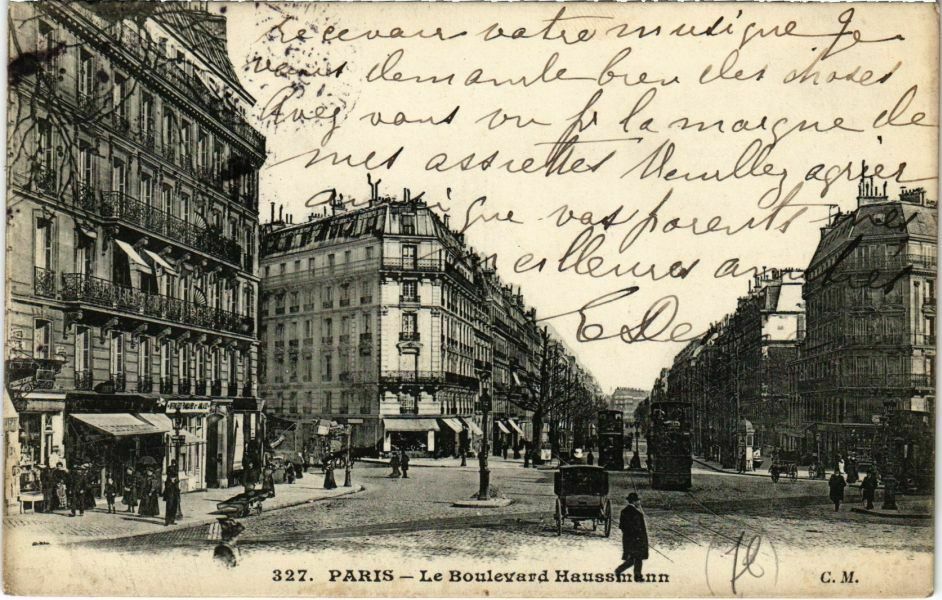 recevoir votre musique Je
vous demande bien des choses
Avez vous vu la marque de
mes assiettes Veuillez agréer
ainsi que vos parents mes
meilleures amitiés
E De
327. PARIS – Le Boulevard Haussmann
C. M.